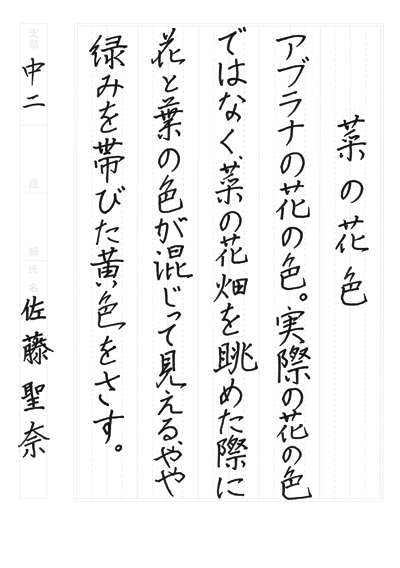 菜の花色
アブラナの花の色。実際の花の色
ではなく、菜の花畑を眺めた際に
花と葉の色が混じって見える、やや
緑みを帯びた黄色をさす。
支部 中二
段
級
氏名 佐藤聖奈